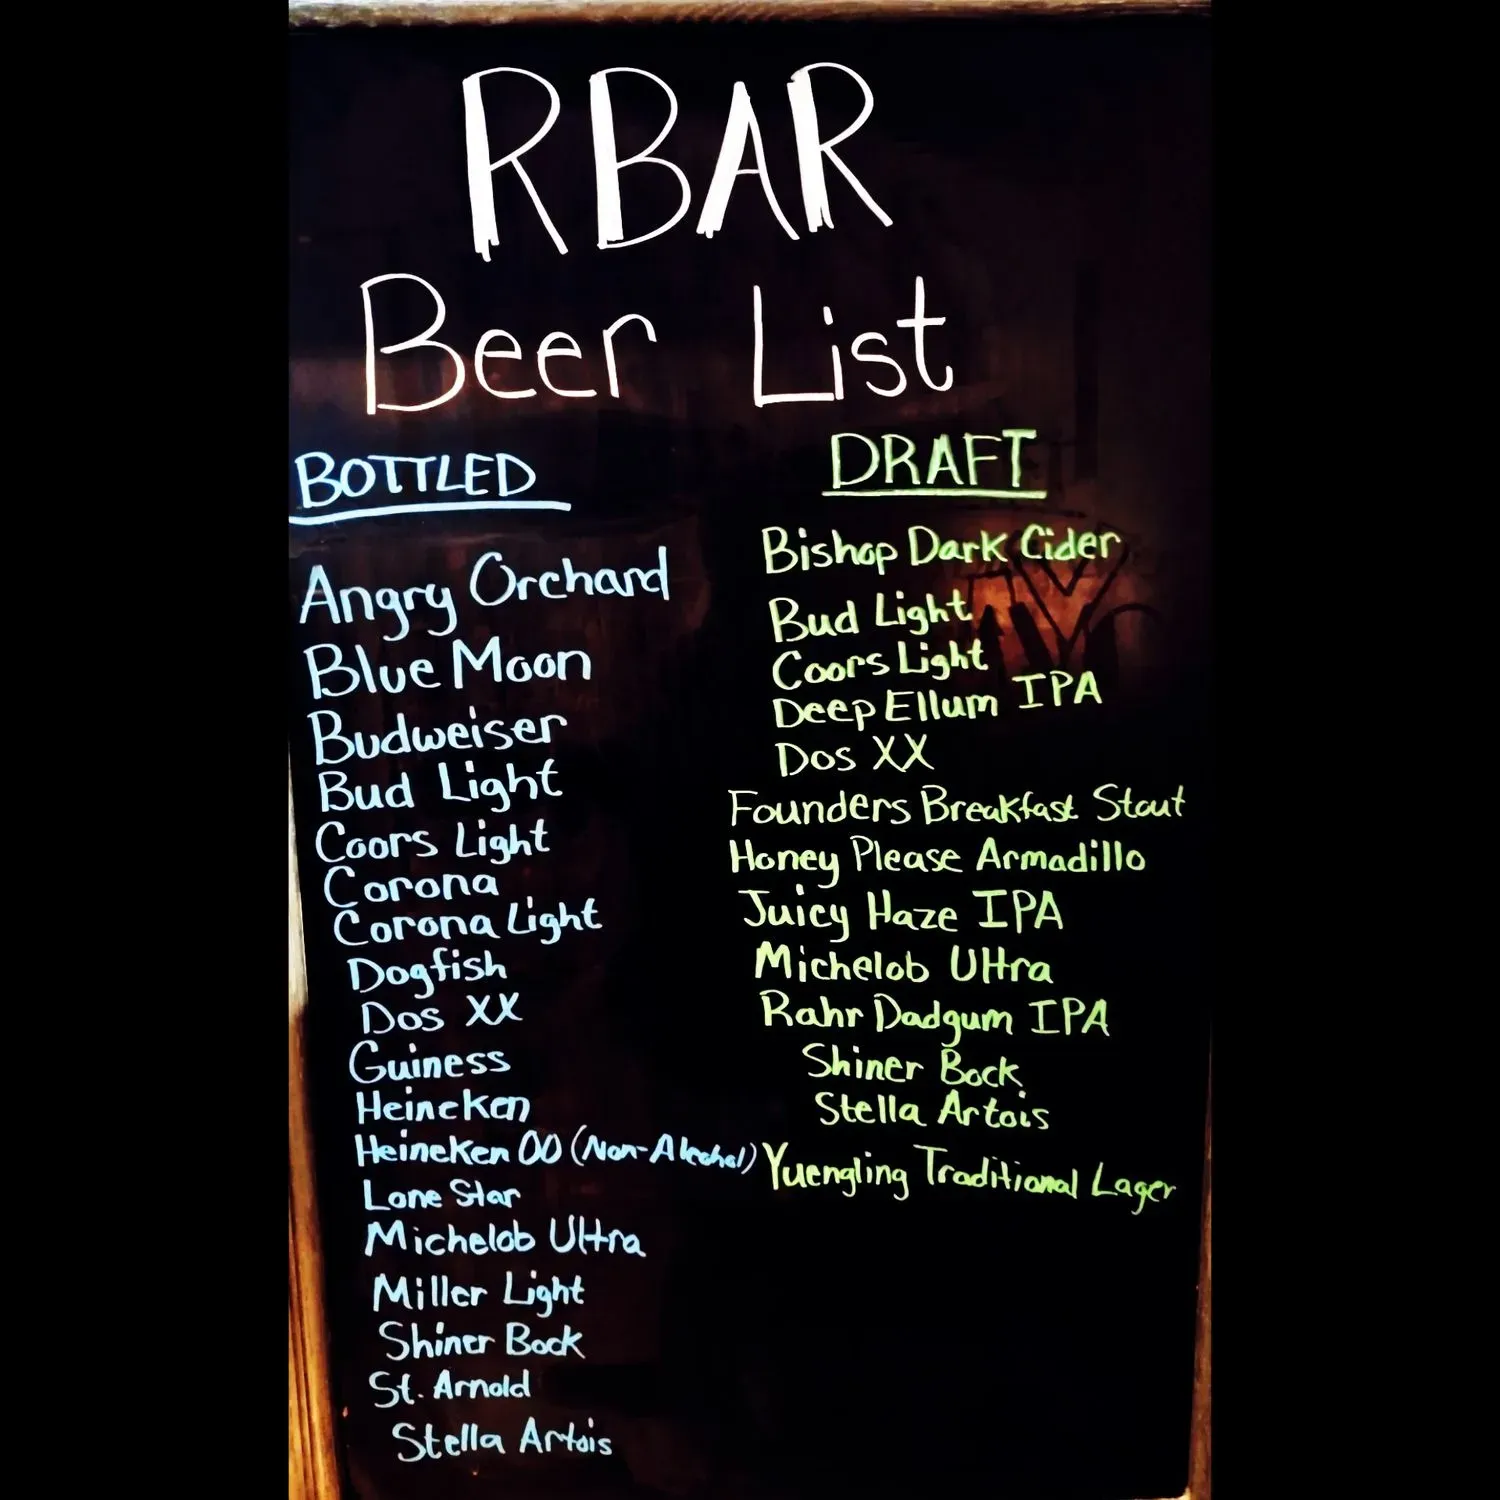 RBAR
Beer List
BOTTLED
Angry Orchard
Blue Moon
Budweiser
Bud Light
Coors Light
Corona
Corona Light
Dogfish
Dos XX
Guiness
Heineken
Heineken 00 (Non-Alcohol)
Lone Star
Michelob Ultra
Miller Light
Shiner Bock
St. Arnold
Stella Artois
DRAFT
Bishop Dark Cider
Bud Light
Coors Light
Deep Ellum IPA
Dos XX
Founders Breakfast Stout
Honey Please Armadillo
Juicy Haze IPA
Michelob Ultra
Rahr Dadgum IPA
Shiner Bock
Stella Artois
Yuengling Traditional Lager